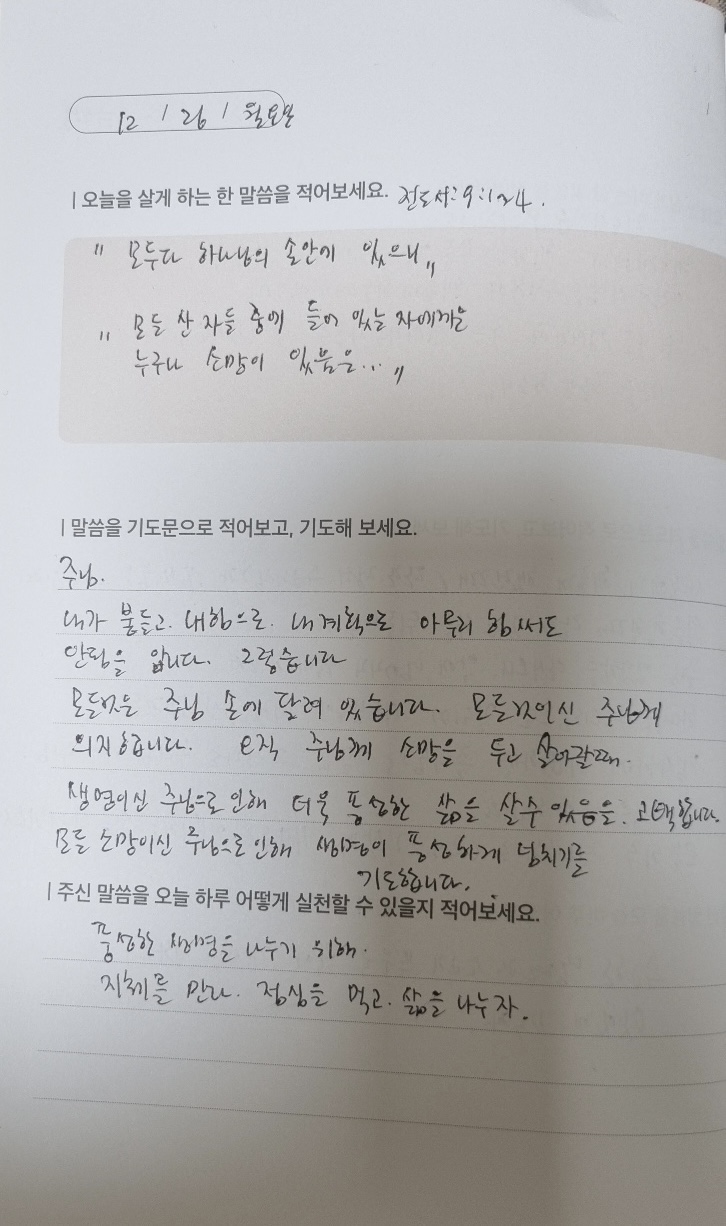 12 / 26 / 월요일
| 오늘을 살게 하는 한 말씀을 적어보세요. 전도서:9:1~4.
" 모두다 하나님의 손안에 있으니 "
" 모든 산 자들 중에 들어 있는 자에게는
누구나 소망이 있음은... "
| 말씀을 기도문으로 적어보고, 기도해 보세요.
주님.
내가 붙들고. 내힘으로. 내계획으로 아무리 힘써도
안됨을 압니다. 그렇습니다
모든것은 주님 손에 달려 있습니다. 모든것인신 주님께
의지합니다. 오직 주님께 소망을 두고 살아갈때.
생명이신 주님으로 인해 더욱 풍성한 삶을 살수 있음을. 고백합니다.
모든 소망이신 주님으로 인해 생명이 풍성하게 넘치기를
기도합니다.
| 주신 말씀을 오늘 하루 어떻게 실천할 수 있을지 적어보세요.
풍성한 생명을 나누기 위해.
지체를 만나. 점심을 먹고. 삶을 나누자.